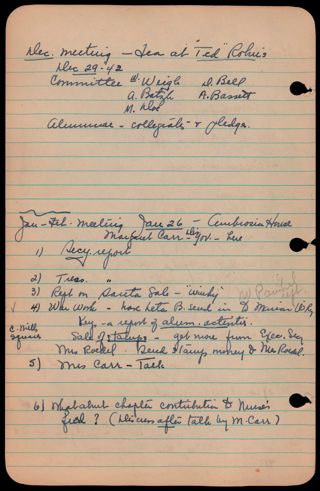 Dec. meeting - Tea at "Ted" Rohr's
Dec 29-42
Committee W. Weigh D. Bell
A. Batzli A. Bassett
M.
Alumnae - collegiates & pledges
Jan-Feb. meeting Jan 26 - Ambrosia House
Margaret Carr - Dist. Gov. - here
1) Secy. report
2) Treas. "
3) Rept on Santa Sale - "Windy"
4) War Work - have Leta B. send in to
Key - a report of alum. activities.
Sale of stamps - get more from Exec. Sec
Mrs Roebel - Send stamps money to Mrs Roebel
5) Mrs Carr - Talk
6) What about chapter contribution to Nurse's
fund? (Discuss after talk by M. Carr)